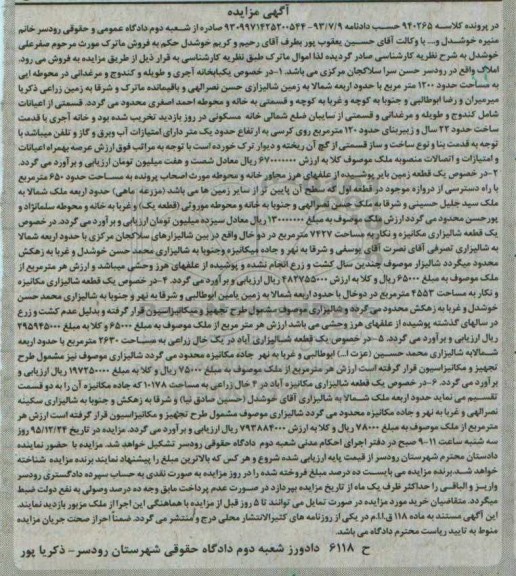 آگهی مزایده
در پرونده کلاسه ۹۴۰۲۶۵ حسب دادنامه ۹۳/۷/۹-۹۳۰۹۹۷۱۴۲۵۲۰۰۵۴۴ صادره از شعبه دوم دادگاه عمومی و حقوقی رودسر خانم
منیره خوشدل و... با وکالت آقای حسین یعقوب پور بطرف آقای رحیم و کریم خوشدل حکم به فروش ماترک مورث مرحوم صفرعلی
خوشدل به شرح نظریه کارشناسی صادر گردیده لذا اموال ماترک طبق نظریه کارشناسی به قرار ذیل از طریق مزایده به فروش می رود.
املاک واقع در رودسر حسن سرا سلاکجان مرکزی می باشد. ۱-در خصوص یکبابخانه آجری و طویله و کندوج و مرغدانی در محوطه ایی
به مساحت حدود ۱۲۰۰ متر مربع با حدود اربعه شمالا به زمین شالیزاری حسن نصرالهی و باقیمانده ماترک و شرقا به زمین زراعی ذکریا
میرمیران و رضا ابوطالبی و جنوبا به کوچه و غربا به کوچه و قسمتی به خانه و محوطه احمد اصغری محدود می گردد. قسمتی از اعیانات
شامل کندوج و طویله و مرغدانی و قسمتی از سایبان ضلع شمالی خانه مسکونی در روز بازدید تخریب شده بود و خانه آجری با قدمت
ساخت حدود ۲۲ سال و زیربنای حدود ۱۲۰ مترمربع روی کرسی به ارتفاع حدود یک متر دارای امتیازات آب وبرق و گاز و تلفن میباشد با
توجه به قدمت بنا و نوع ساخت و ساز قسمتی از گچ آن ریخته و دیوار ترک خورده است با توجه به مراتب فوق ارزش عرصه بهمراه اعیانات
و امتیازات و اتصالات منصوبه ملک موصوف کلا به ارزش ۶۷۰۰۰۰۰۰۰ ریال معادل شصت و هفت میلیون تومان ارزیابی و برآورد می گردد.
۲-در خصوص یک قطعه زمین بایر پوشیده از علفهای هرز مجاور خانه و محوطه مورث اصحاب پرونده به مساحت حدود ۶۵۰ مترمربع
با راه دسترسی از دروازه موجود در قطعه اول که سطح آن پایین تر از سایر زمین ها می باشد (مزرعه ماهی) حدود اربعه ملک شمالا به
ملک سید جلیل حسینی و شرقا به ملک حسن نصرالهی و جنوبا به خانه و محوطه موروثی (قطعه یک) و غربا به خانه و محوطه سلمانژاد و
پورحسن محدود می گردد ارزش ملک موصوف به مبلغ ۱۳۰۰۰۰۰۰۰ ریال معادل سیزده میلیون تومان ارزیابی و برآورد می گردد. در خصوص
یک قطعه شالیزاری مکانیزه و نکار به مساحت ۷۴۲۷ مترمربع در دو خال واقع در بین شالیزارهای سلاکجان مرکزی با حدود اربعه شمالا
به شالیزاری تصرفی آقای نصرت آقای یوسفی و شرقا به نهر و جاده میکانیزه وجنوبا به شالیزاری محمد حسن خوشدل و غربا به زهکش
محدود میگردد شالیزار موصوف چندین سال کشت و زرع انجام نشده و پوشیده از علفهای هرز وحشی میباشد و ارزش هر مترمربع از
ملک موصوف به مبلغ ۶۵۰۰۰ ریال و کلا به ارزش ۴۸۲۷۵۵۰۰۰ ریال ارزیابی و برآورد می گردد. ۴-در خصوص یک قطعه شالیزاری مکانیزه
و نکار به مساحت ۴۵۵۳ مترمربع در دوخال با حدود اربعه شمالا به زمین یامین ابوطالبی و شرقا به نهر و جنوبا به شالیزاری محمد حسن
خوشدل و غربا به زهکش محدود می گردد و شالیزاری موصوف مشمول طرح تجهیز و میکانیزاسیون قرار گرفته و بدلیل عدم کشت و زرع
در سالهای گذشته پوشیده از علفهای هرز وحشی می باشد ارزش هر متر مربع از ملک موصوف به مبلغ ۶۵۰۰۰ و کلا به مبلغ ۲۹۵۹۴۵۰۰۰
ریال ارزیابی و برآورد می گردد. ۵-در خصوص یک قطعه شالیزاری آباد در یک خال زراعی به مساحت ۲۶۳۰ مترمربع با حدود اربعه
شمالابه شالیزاری محمد حسین (عزت ا...) ابوطالبی و غربا به نهر جاده مکانیزه محدود می گردد شالیزاری موصوف نیز مشمول طرح
تجهیز و مکانیزاسیون قرار گرفته است ارزش هر مترمربع از ملک موصوف به مبلغ ۷۵۰۰۰ ریال و کلا به مبلغ ۱۹۷۲۵۰۰۰۰ ریال ارزیابی و
برآورد می گردد. ۶-در خصوص یک قطعه شالیزاری مکانیزه آباد در ۴ خال زراعی به مساحت ۱۰۱۷۸ که جاده مکانیزه آن را به دو قسمت
تقسیم می نماید حدود اربعه ملک شمالا به شالیزاری آقای خوشدل (حسین صادق نیا) و شرقا به زهکش و جنوبا به شالیزاری سکینه
نصرالهی و غربا به نهر و جاده مکانیزه محدود می گردد شالیزاری موصوف مشمول طرح تجهیز و مکانیزاسیون قرار گرفته است ارزش هر
مترمربع از ملک موصوف به مبلغ ۷۸۰۰۰ ریال و کلا به ارزش ۷۹۳۸۸۴۰۰۰ ریال ارزیابی و برآورد می گردد. مزایده در تاریخ ۹۵/۱۲/۲۴ روز
سه شنبه ساعت ۱۱-۹ صبح در دفتر اجرای احکام مدنی شعبه دوم دادگاه حقوقی رودسر تشکیل خواهد شد. مزایده با حضور نماینده
دادستان محترم شهرستان رودسر از قیمت پایه ارزیابی شده شروع و هر کس که بالاترین مبلغ را پیشنهاد نمایند برنده مزایده شناخته
خواهد شد.برنده مزایده می بایست ده درصد مبلغ فروخته شده را در روز مزایده به صورت نقدی به حساب سپرده دادگستری رودسر
واریز و الباقی را حداکثر ظرف یک ماه از تاریخ مزایده بپردازد در صورت عدم پرداخت مابق وجه ده درصد وصولی به نفع دولت ضبط
میگردد. متقاضیان خرید مورد مزایده در صورت تمایل می توانند تا ۵ روز قبل از مزایده با هماهنگی این اجرا از ملک مزبور بازدید نمایند.
این آگهی مستند به ماده ۱۱۸ ق.ا.ا.م در یکی از روزنامه های کثیرالانتشار محلی درج و منتشر می گردد. ضمنا احراز صحت جریان مزایده
منوط به تایید ریاست محترم دادگاه می باشد.
ح ۶۱۱۸ دادورز شعبه دوم دادگاه حقوقی شهرستان رودسر- ذکریا پور